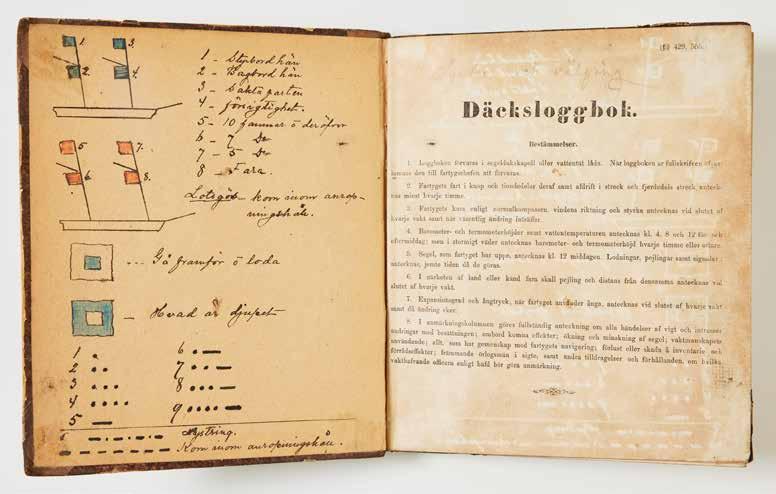 1 3.
2 4.
1 - Styrbord hän
2 - Bagbord hän
3 - Sakta parten
4 - försigtighet.
5 - 10 famnar o deröfver
6 - 7 Do
7 - 5 Do
8 - Fara.
5 7
6 8.
Lotsgös - kom inom anrop-
ningshåll.
... Gå framför o loda
- Hvad är djupet
1
2
3
4
5
6
7
8
9
Nystring.
Kom inom anropningshåll.
(§§ 429, 566.)
Däcksloggbok.
Bestämmelser.
1. Loggboken förvaras i segelduksskapell eller vattentät låda. När loggboken är fullskrifven
den till fartygschefen att förvaras.
2. Fartygets fart i knop och tiondedelar deraf samt afdrift i streck och fjerdedels streck, anteck-
nas minst hvarje timme.
3. Fartygets kurs enligt normalkompassen, vindens riktning och styrka antecknas vid slutet af
hvarje vakt samt när väsentlig ändring inträffar.
4. Barometer- och termometerhöjder samt vattentemperaturen antecknas kl. 4, 8 och 12 för- och
eftermiddag; men i stormigt väder antecknas barometer- och termometerhöjd hvarje timme eller oftare.
5. Segel, som fartyget har uppe, antecknas kl. 12 middagen. Lodningar, pejlingar samt signaler
antecknas, jemte tiden då de göras.
6. I närheten af land eller känd fara skall pejling och distans från densamma antecknas vid
slutet af hvarje vakt.
7. Expansionsgrad och ångtryck, när fartyget använder ånga, antecknas vid slutet af hvarje vakt
samt då ändring sker.
8. I anmärkningskolumnen göres fullständig anteckning om alla händelser af vigt och intresse:
ändringar med besättningen; ombord komna effekter; ökning och minskning af segel; vaktmanskapets
användande; allt, som har gemenskap med fartygets navigering; förlust eller skada å inventarie- och
förrådseffekter; främmande örlogsmän i sigte, samt andra tilldragelser och förhållanden, om hvilka
vakthafvande officern enligt befäl bör göra anmärkning.